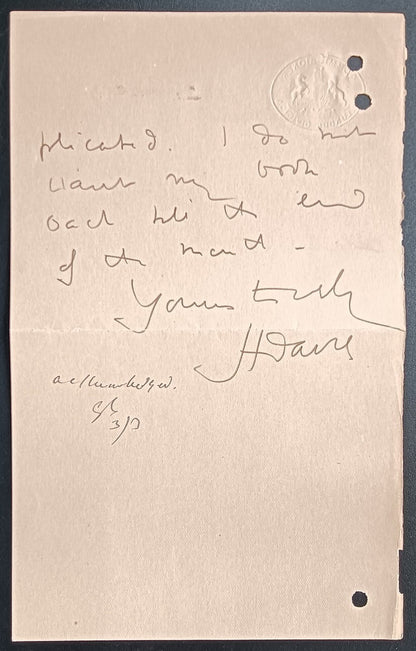 plicated. I do not
want my book
back till the end
of the month -
Yours truly
HDavis
acknowledged.
3/3